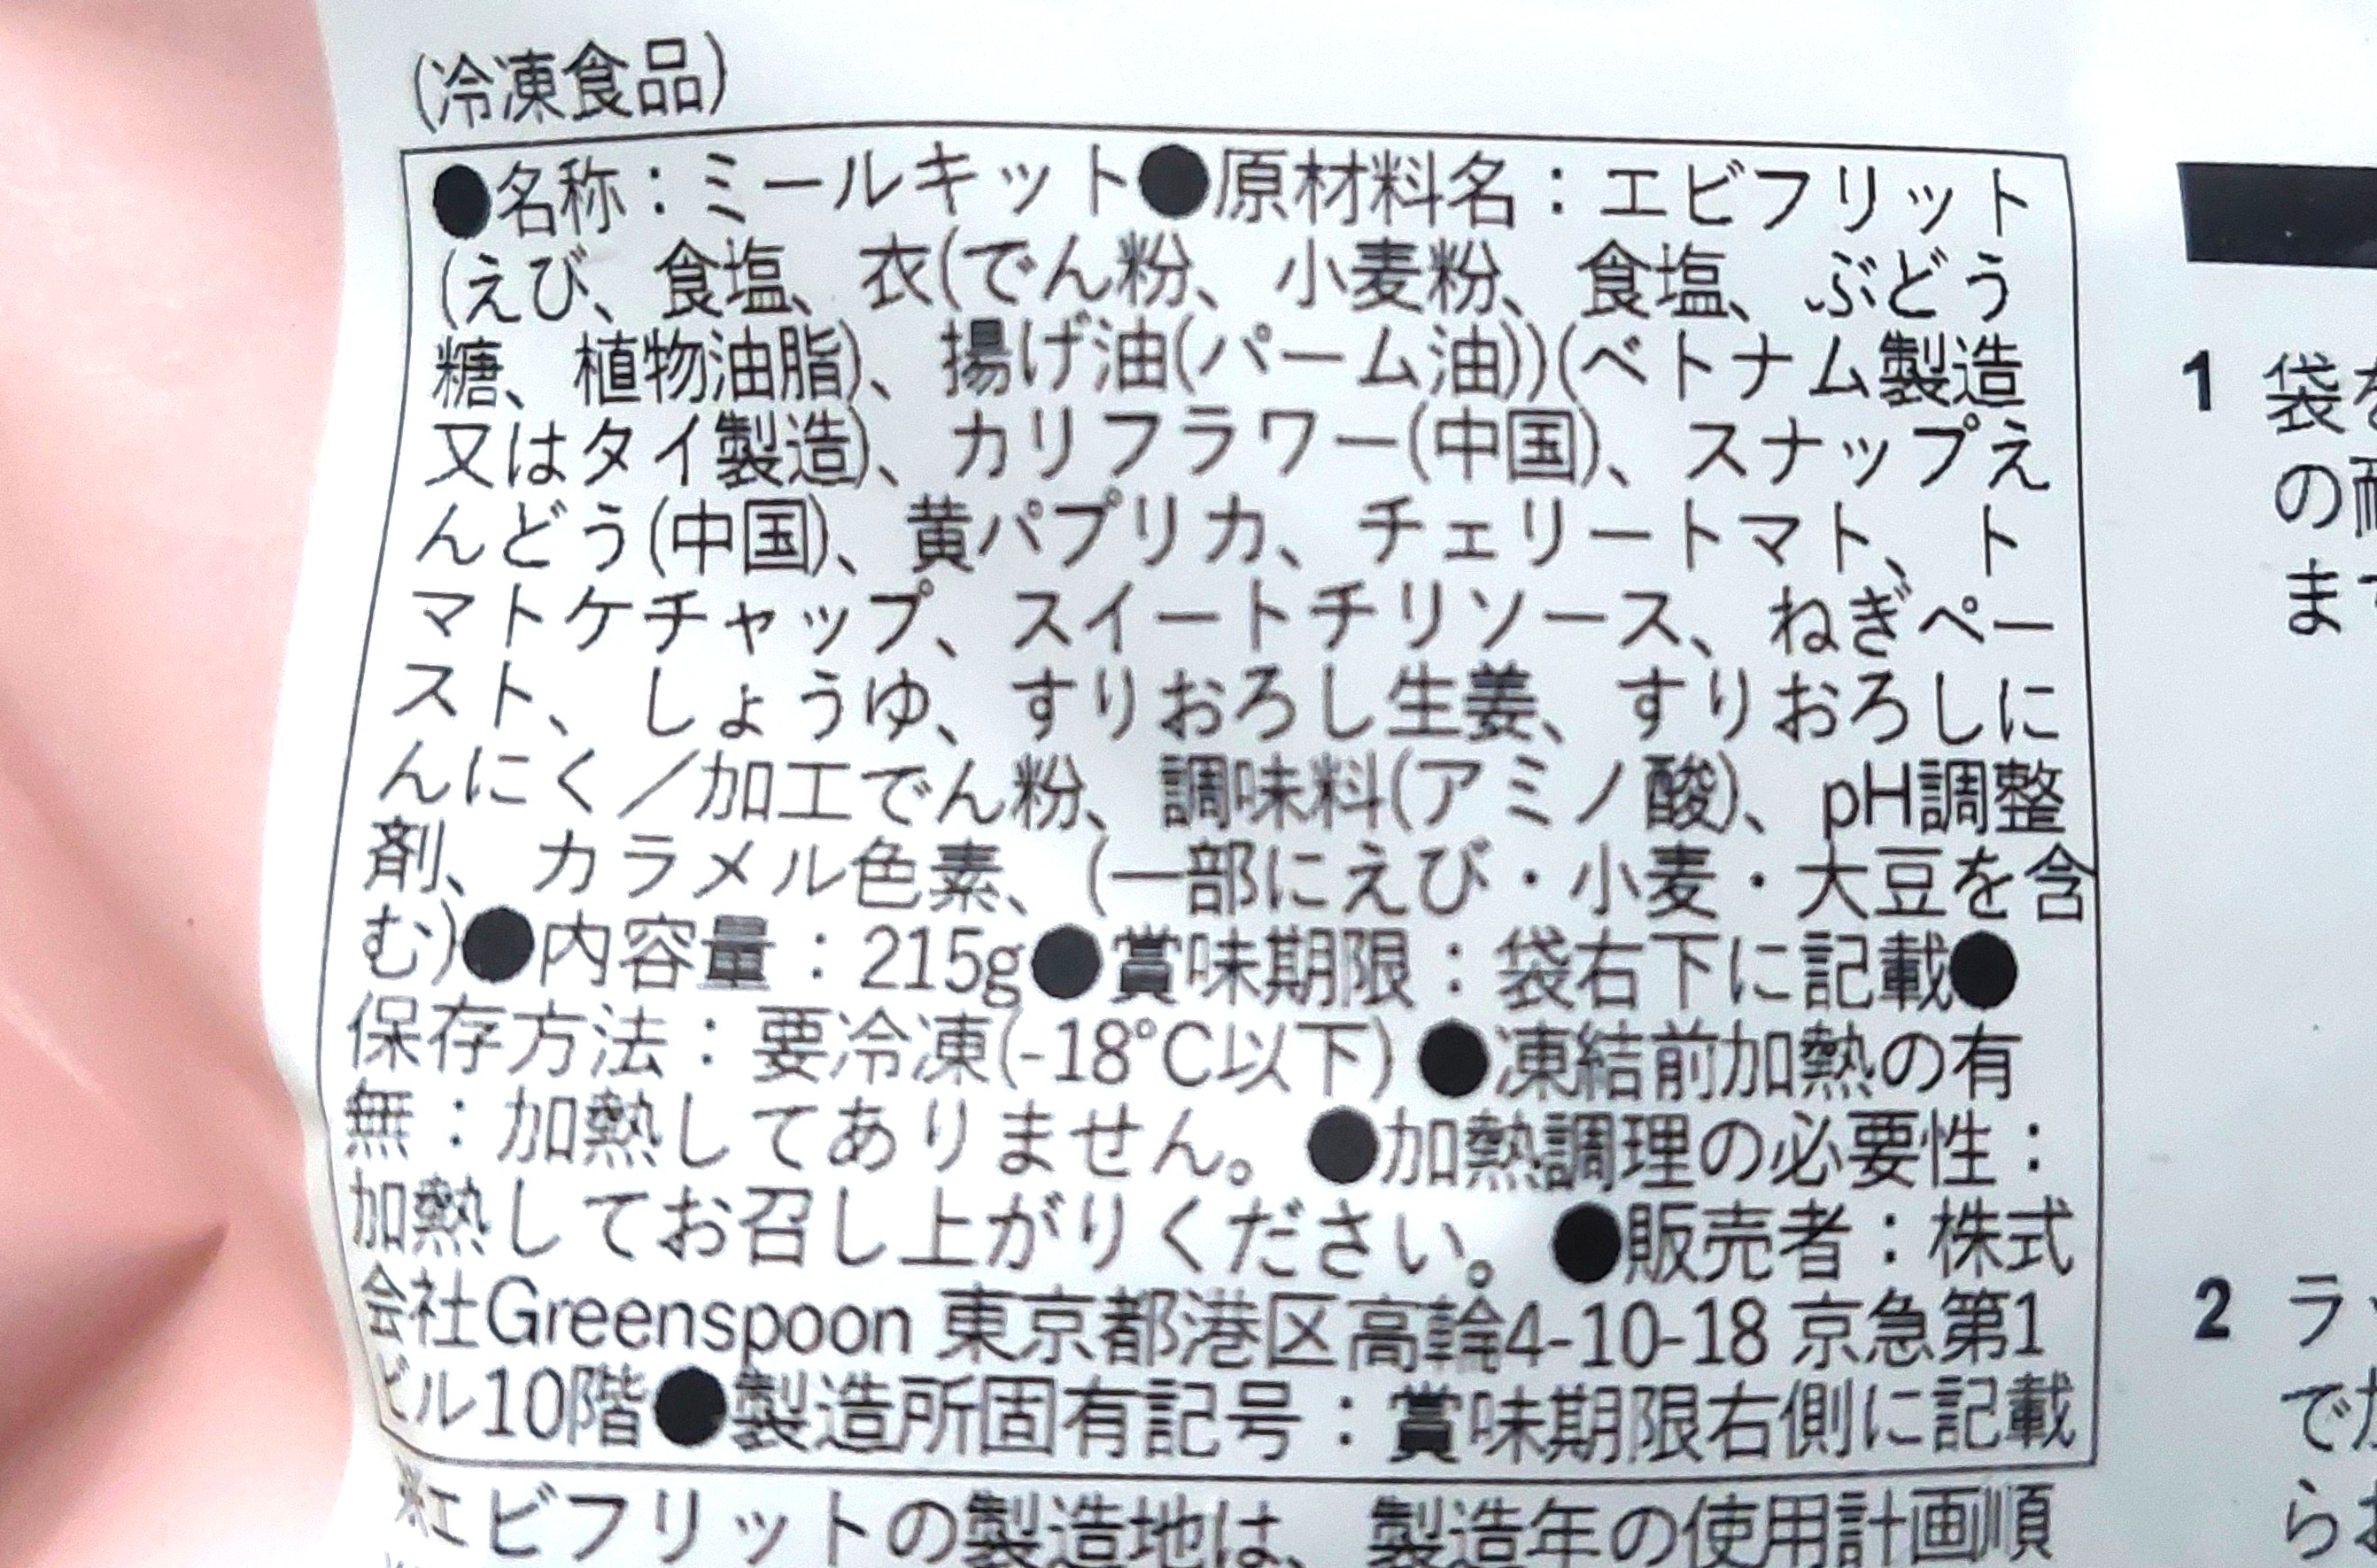 (冷凍食品)
●名称：ミールキット●原材料名：エビフリット
(えび、食塩、衣(でん粉、小麦粉、食塩、ぶどう
糖、植物油脂)、揚げ油(パーム油))(ベトナム製造
又はタイ製造)、カリフラワー(中国)、スナップえ
んどう(中国)、黄パプリカ、チェリートマト、ト
マトケチャップ、スイートチリソース、ねぎペー
スト、しょうゆ、すりおろし生姜、すりおろしに
んにく／加工でん粉、調味料(アミノ酸)、pH調整
剤、カラメル色素、(一部にえび・小麦・大豆を含
む)●内容量：215g●賞味期限：袋右下に記載●
保存方法：要冷凍(-18℃以下)●凍結前加熱の有
無：加熱してありません。●加熱調理の必要性：
加熱してお召し上がりください。●販売者：株式
会社Greenspoon 東京都港区高輪4-10-18 京急第1
ビル10階●製造所固有記号：賞味期限右側に記載
※エビフリットの製造地は、製造年の使用計画順
1 袋を
の耐
ます
2 ラッ
で加
らお